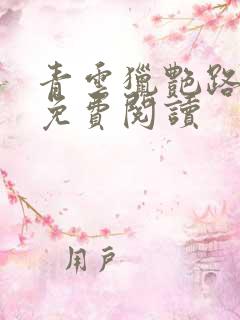 青雲獵艷路
免費閱讀
用戶